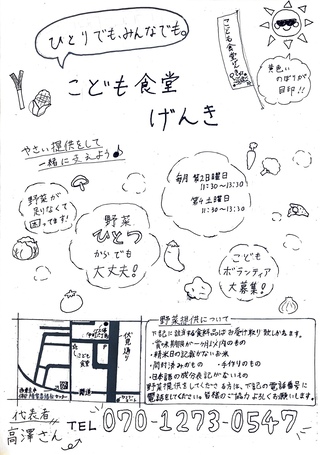 ひとりでも、みんなでも。
こども食堂
げんき
黄色い
のぼりが
目印!!
やさい提供をして
一緒にささえよう♪
野菜が
足りなくて
困ってます!
野菜
ひとつ
からでも
大丈夫!
毎月 第2日曜日
11:30〜13:30
第4土曜日
11:30〜13:30
こども
ボランティア
大募集!
野菜提供について
下記に該当する食料品はお受け取り致しかねます。
・賞味期限が一ヶ月以内のもの
・精米日の記載がないお米
・開封済みのもの ・手作りのもの
・日本語の成分表記がないもの
野菜提供をしてくださる方は、下記の電話番号に
電話をしてください。皆様のご協力よろしくお願いします。
代表者
高澤さん
TEL 070-1273-0547